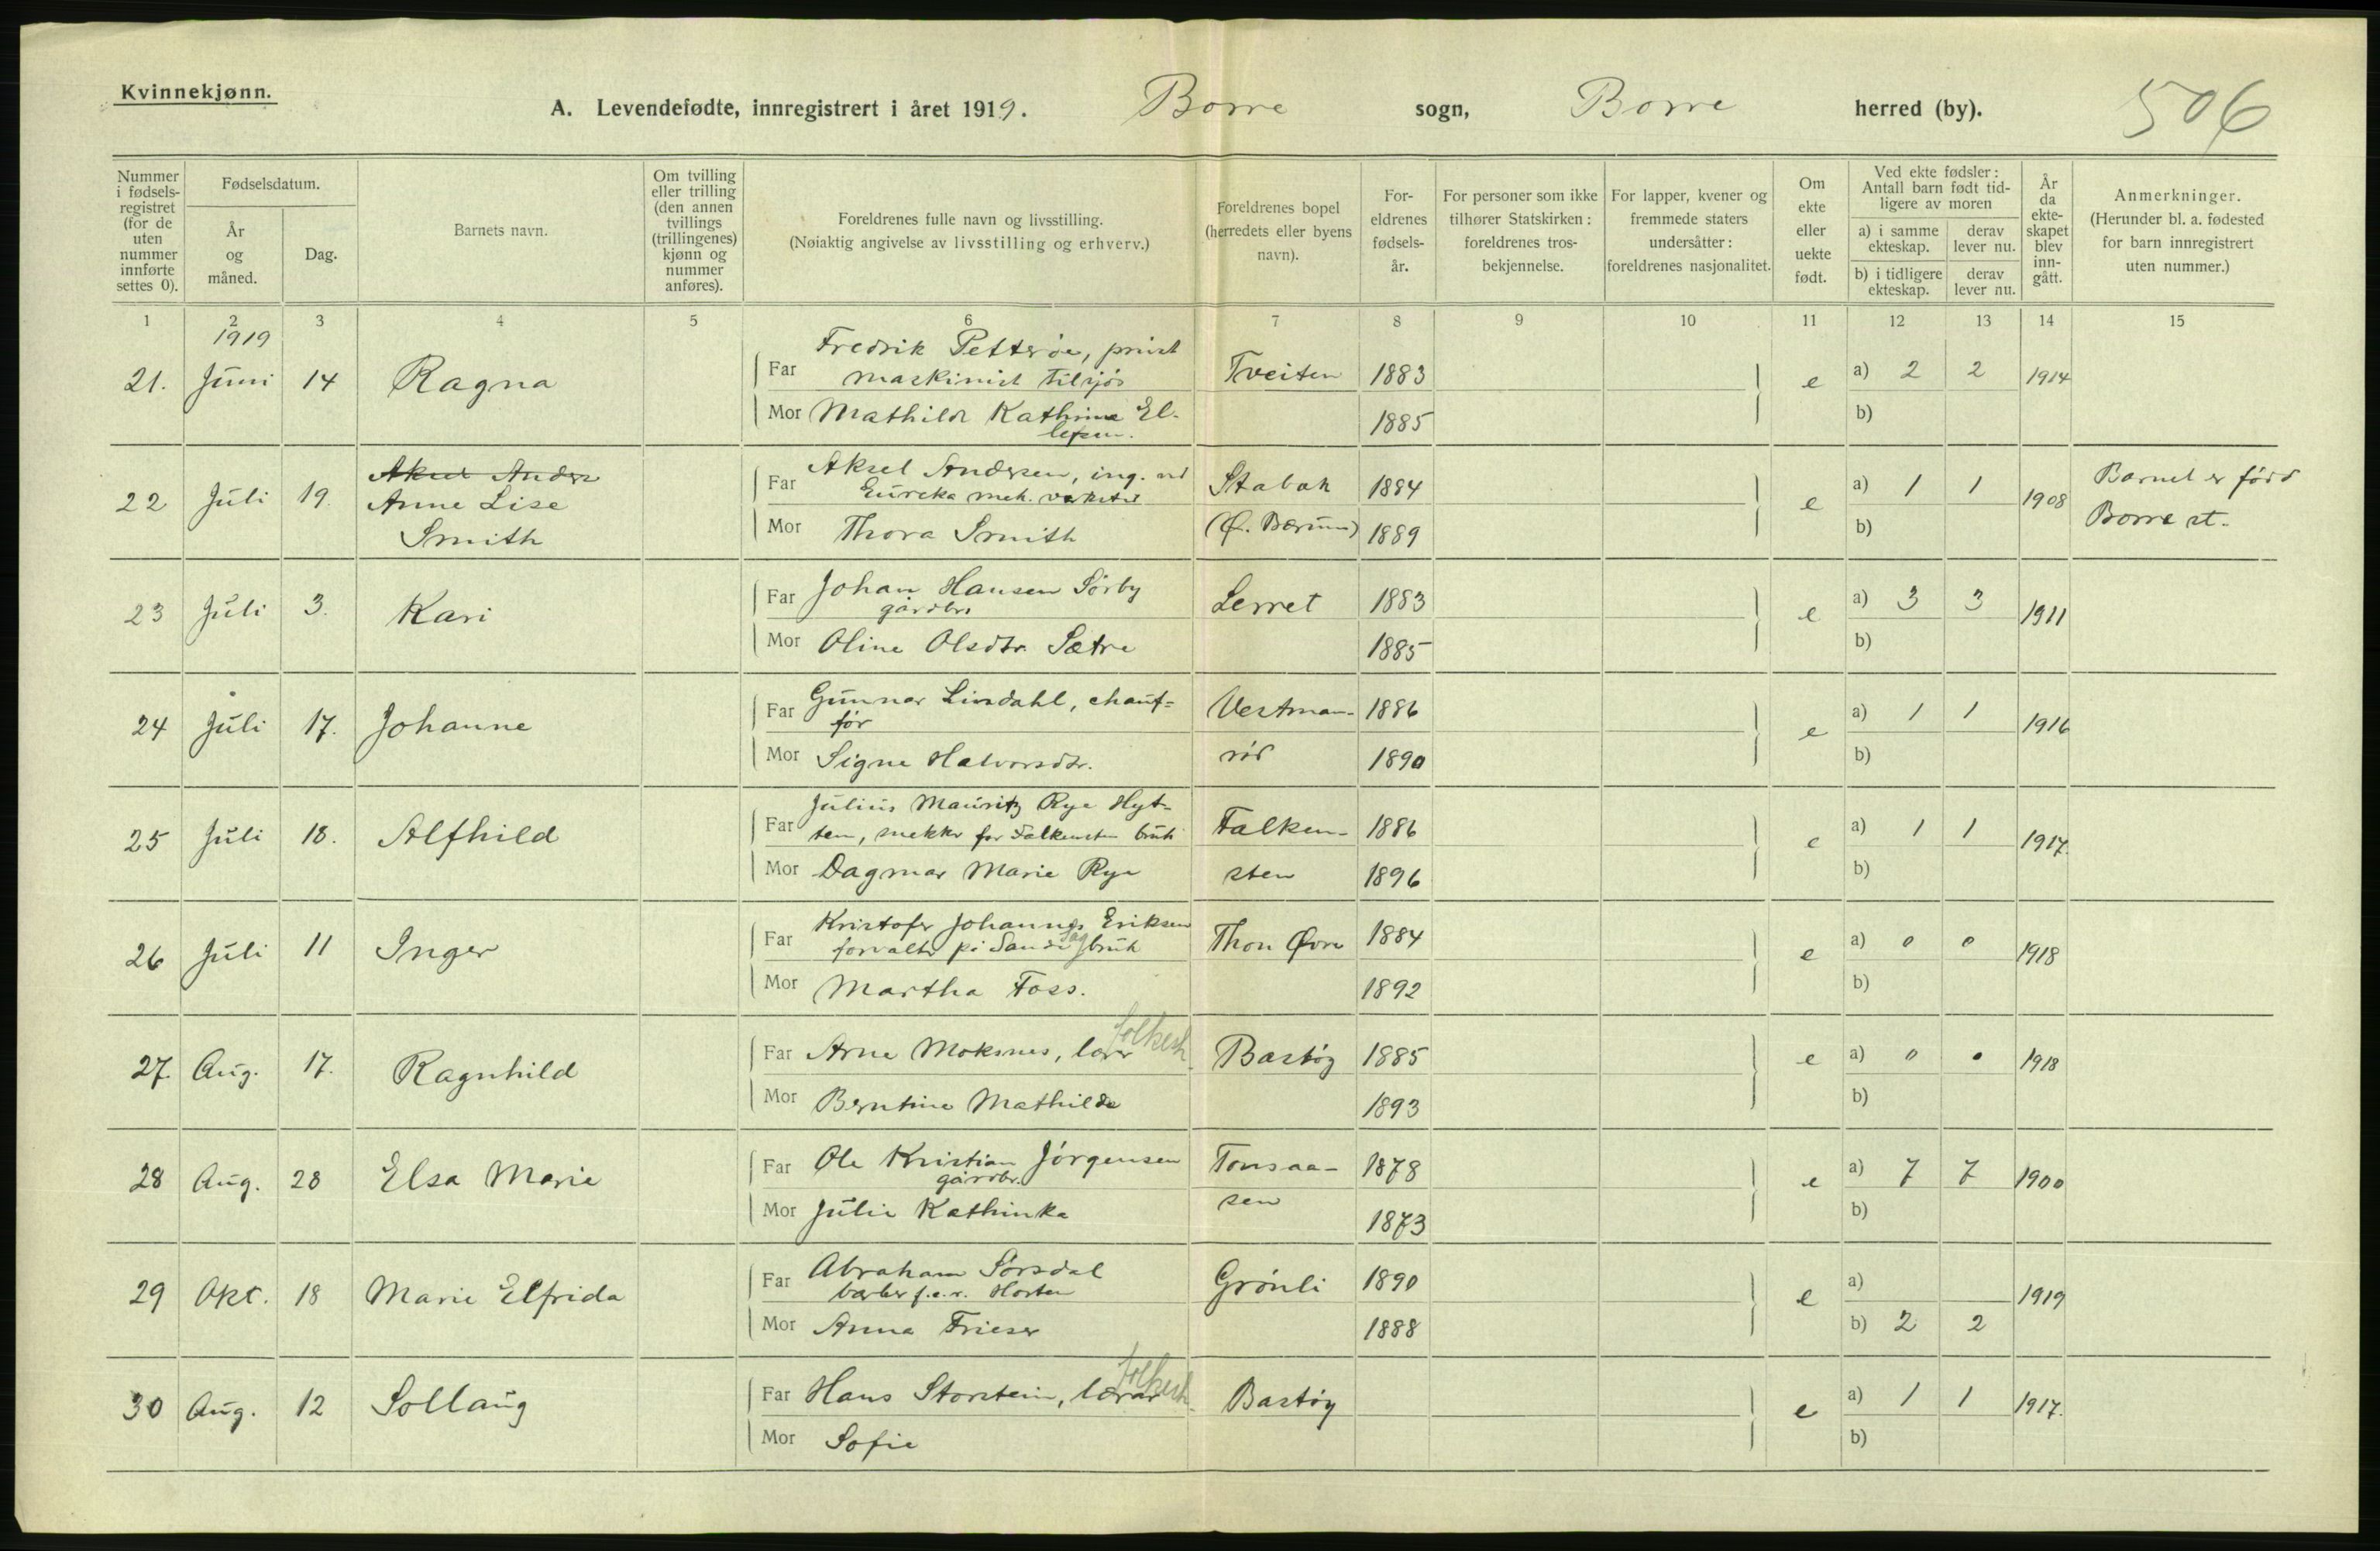 Kvinnekjønn.
A. Levendefødte, innregistrert i året 1919. Borre sogn, Borre herred (by). 506
Nummer i fødsels- registret (for de uten nummer innførte settes 0).
Fødselsdatum.
År og måned.
Dag.
Barnets navn.
Om tvilling eller trilling (den annen tvillings (trillingenes) kjønn og nummer anføres).
Foreldrenes fulle navn og livsstilling.
(Nøiaktig angivelse av livsstilling og erhverv.)
Foreldrenes bopel (herredets eller byens navn).
For- eldrenes fødsels- år.
For personer som ikke tilhører Statskirken: foreldrenes tros- bekjennelse.
For lapper, kvener og fremmede staters undersåtter: foreldrenes nasjonalitet.
Om ekte eller uekte født.
Ved ekte fødsler: Antall barn født tid- ligere av moren
a) i samme ekteskap.
derav lever nu.
b) i tidligere ekteskap.
derav lever nu.
År da ekte- skapet blev inn- gått.
Anmerkninger.
(Herunder bl. a. fødested for barn innregistrert uten nummer.)
1 2 3 4 5 6 7 8 9 10 11 12 13 14 15
1919
21. Juni 14 Ragna
Far Fredrik Petterøe,
maskinist tilsjøs Tveiten 1883 e a) 2 2 1914
Mor Mathilde Kathrine El-
lefsen. 1885 b)
22 Juli 19. Aksel Anders
Anne Lise
Smith
Far Aksel Andersen, ing. ved
Eureka mek. verksted Stabæk 1884 e a) 1 1 1908 Barnet er född
Mor Thora Smith (Ø. Bærum) 1889 b) Borre st.
23 Juli 3. Kari
Far Johan Hansen Sørby
gårdbr. Lerret 1883 e a) 3 3 1911
Mor Oline Olsdtr. Sætre 1885 b)
24 Juli 17. Johanne
Far Gunnar Lindahl, chauf-
før Vestman- 1886 e a) 1 1 1916
Mor Signe Halvorsdtr. rød 1890 b)
25 Juli 18. Alfhild
Far Julius Mauritz Rye Hyt-
ten, snekker for Falkensten bruk Falken- 1886 e a) 1 1 1917.
Mor Dagmar Marie Rye sten 1896 b)
26 Juli 11 Inger
Far Kristofer Johannes Eriksen
forvalter på Sande sagbruk Thon Øvre 1884 e a) 0 0 1918
Mor Martha Foss. 1892 b)
27. Aug. 17. Ragnhild
Far Arne Moksnes, lærer folkesk. Bastøy 1885 e a) 0 0 1918
Mor Berntine Mathilde 1893 b)
28 Aug. 28 Elsa Marie
Far Ole Kristian Jörgensen
gårdbr. Tonsaa- 1878 e a) 7 7 1900
Mor Julie Kathinka sen 1873 b)
29 Okt. 18 Marie Elfrida
Far Abraham Sørsdal
barber f.e.r. Horten Grönli 1890 e a) 1919
Mor Anna Frieser 1888 b) 2 2
30 Aug. 12 Sollaug
Far Hans Storstein, lærer folkesk. Bastøy e a) 1 1 1917.
Mor Sofie b)